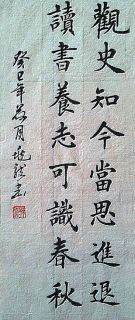 觀史知今當思進退
讀書養志可識春秋
癸巳年